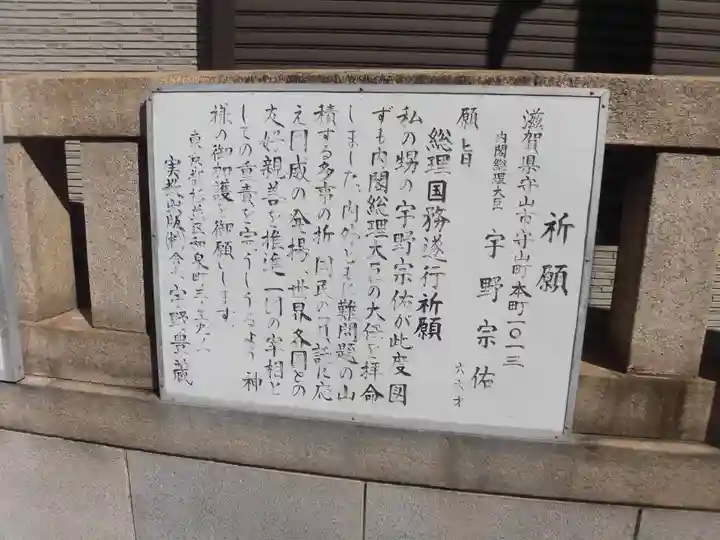 祈願
滋賀県守山市守山町本町一〇一三
内閣総理大臣 宇野宗佑
六六才
願旨
総理国務遂行祈願
私の甥の宇野宗佑が此度図
ずも内閣総理大臣の大任を拝命
しました、内外ともに難問題の山
積する多事の折 国民の一
え国威の発揚、世界各国との
友好親善を推進 一国の宰相と
しての重責を完うしうるよう 神
様の御加護を御願します。
東京都杉並区和泉町
実業出版(株)会長 宇野豊蔵